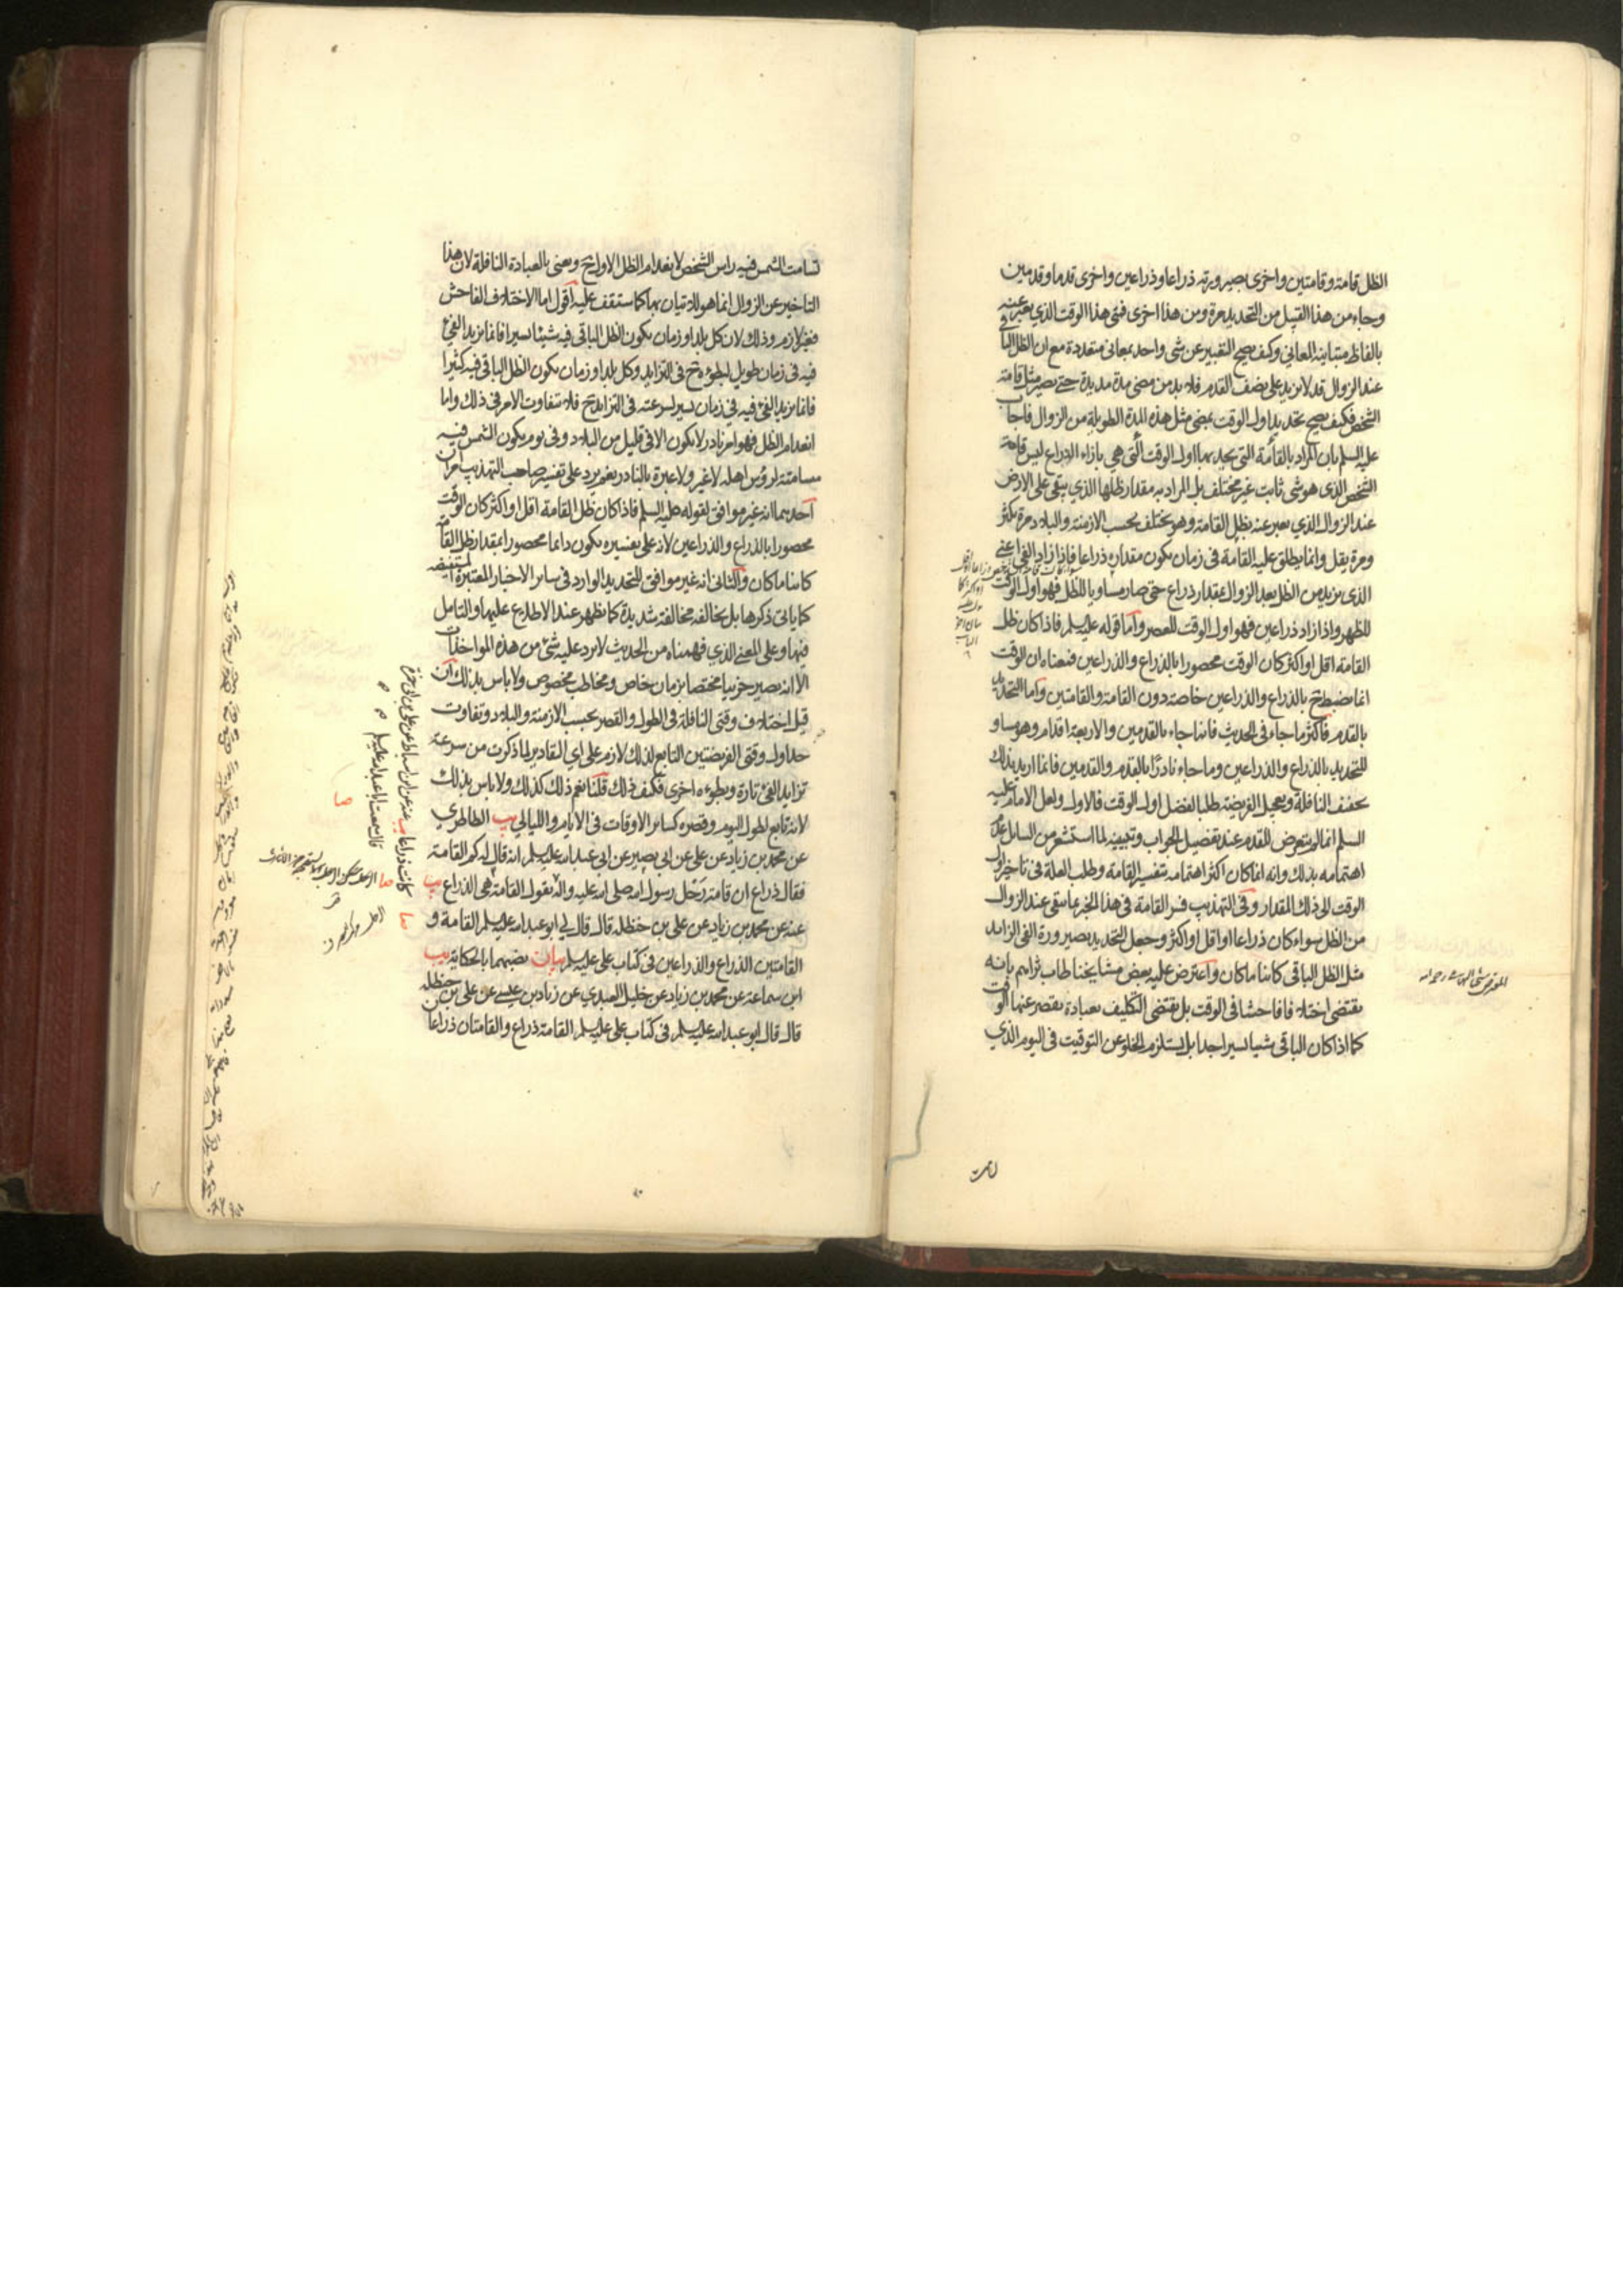 الظل قامة وقامتين واخرى بصيرورته ذراعا وذراعين واخرى قدما وقدمين
وجاء من هذا القبيل من التحديد مرة ومن هذا اخرى فمتى هذا الوقت الذي يعبر عنه
بالفاظ متباينة المعاني وكيف يصح التعبير عن شئ واحد بمعاني متعددة مع ان الظل الباقي
عند الزوال قد لا يزيد على نصف القدم فلا بد من مضي مدة مديدة حتى يصير مثل قامة
الشخص فكيف يصح تحديد اول الوقت بمضي مثل هذه المدة الطويلة من الزوال فاجاب
عليه السلم بان المراد بالقامة التي يحد بها اول الوقت التي هي بازاء الذراع ليس قامة
الشخص الذي هو شئ ثابت غير مختلف بل المراد به مقدار ظلها الذي يبقى على الارض
عند الزوال الذي يعبر عنه بظل القامة وهو يختلف بحسب الازمنة والبلاد مرة يكثر
ومرة يقل وانما يطلق عليه القامة في زمان يكون مقداره ذراعا فاذا زاد الفئ اعني
الذي يزيد من الظل بعد الزوال بمقدار ذراع حتى صار مساويا للظل فهو اول الوقت
للظهر واذا زاد ذراعين فهو اول الوقت للعصر واما قوله عليه السلم فاذا كان ظل
القامة اقل او اكثر كان الوقت محصورا بالذراع والذراعين فمعناه ان الوقت
انما ينضبط ح بالذراع والذراعين خاصة دون القامة والقامتين واما التحديد
بالقدم فاكثر ما جاء في الحديث فانما جاء بالقدمين والاربعة اقدام وهو مساو
للتحديد بالذراع والذراعين وما جاء نادرا بالقدم والقدمين فانما اريد بذلك
تخفيف النافلة وتعجيل الفريضة طلبا لفضل اول الوقت فالاول ولعل الامام عليه
السلم انما لم يتعرض للقدم عند تفصيل الجواب وتبيينه لما استشعر من السائل عدم
اهتمامه بذلك وانه انما كان اكثر اهتمامه بتفسير القامة وطلب العلة في تاخير اول
الوقت الى ذلك المقدار وفي التهذيب فسر القامة في هذا الخبر بما يبقى عند الزوال
من الظل سواء كان ذراعا او اقل او اكثر وجعل التحديد بصيرورة الفئ الزايد
مثل الظل الباقي كائنا ما كان واعترض عليه بعض مشايخنا طاب ثراهم بانه
يقتضي اختلافا فاحشا في الوقت بل يقتضي التكليف بعبادة يقصر عنها الوقت
كما اذا كان الباقي شيا يسيرا جدا بل يستلزم الخلو عن التوقيت في اليوم الذي
تسامت الشمس فيه راس الشخص لانعدام الظل الاول ح ويعنى بالعبادة النافلة لان هذا
التاخير عن الزوال انما هو للاتيان بها كما ستقف عليه اقول اما الاختلاف الفاحش
فغير لازم وذلك لان كل بلد او زمان يكون الظل الباقي فيه شيئا يسيرا فانما يزيد الفئ
فيه في زمان طويل لبطوءه ح في التزايد وكل بلد او زمان يكون الظل الباقي فيه كثيرا
فانما يزيد الفئ فيه في زمان يسير لسرعته في التزايد ح فلا تتفاوت الامر في ذلك واما
انعدام الظل فهو امر نادر لا يكون الا في قليل من البلاد وفي يوم يكون الشمس فيه
مسامتة لرؤس اهله لا غير ولا عبرة بالنادر نعم يرد على تفسير صاحب التهذيب امران
احدهما انه غير موافق لقوله عليه السلم فاذا كان ظل القامة اقل او اكثر كان الوقت
محصورا بالذراع والذراعين لانه على تفسيره يكون دائما محصورا بمقدار ظل القامة
كائنا ما كان والثاني انه غير موافق للتحديد الوارد في سائر الاخبار المعتبرة المستفيضة
كما ياتي ذكرها بل يخالفه مخالفة شديدة كما يظهر عند الاطلاع عليها والتامل
فيها وعلى المعنى الذي فهمناه من الحديث لا يرد عليه شئ من هذه المواخذات
الا انه يصير جزئيا مختصا بزمان خاص ومخاطب مخصوص ولا باس بذلك ان
قيل اختلاف وقتي النافلة في الطول والقصر بحسب الازمنة والبلاد وتفاوت
حد اول وقتي الفريضتين التابع لذلك لازم على اي التقادير لما ذكرت من سرعة
تزايد الفئ تارة وبطوءه اخرى فكيف ذلك قلنا نعم ذلك كذلك ولا باس بذلك
لانه تابع لطول اليوم وقصره كسائر الاوقات في الايام والليالي يب الطاطري
عن محمد بن زياد عن علي عن ابي بصير عن ابي عبد الله عليه السلم انه قال له كم القامة
فقال ذراع ان قامة رحل رسول الله صلى الله عليه واله يقول القامة هي الذراع يب
عنه عن محمد بن زياد عن علي بن حنظلة قال قال لي ابو عبد الله عليه السلم القامة و
القامتين الذراع والذراعين في كتاب علي عليه السلم بيان نصبهما بالحكاية يب
ابن سماعة عن محمد بن زياد عن خليل العبدي عن زياد بن عيسى عن علي بن حنظلة
قال قال ابو عبد الله عليه السلم في كتاب علي عليه السلم القامة ذراع والقامتان ذراعا